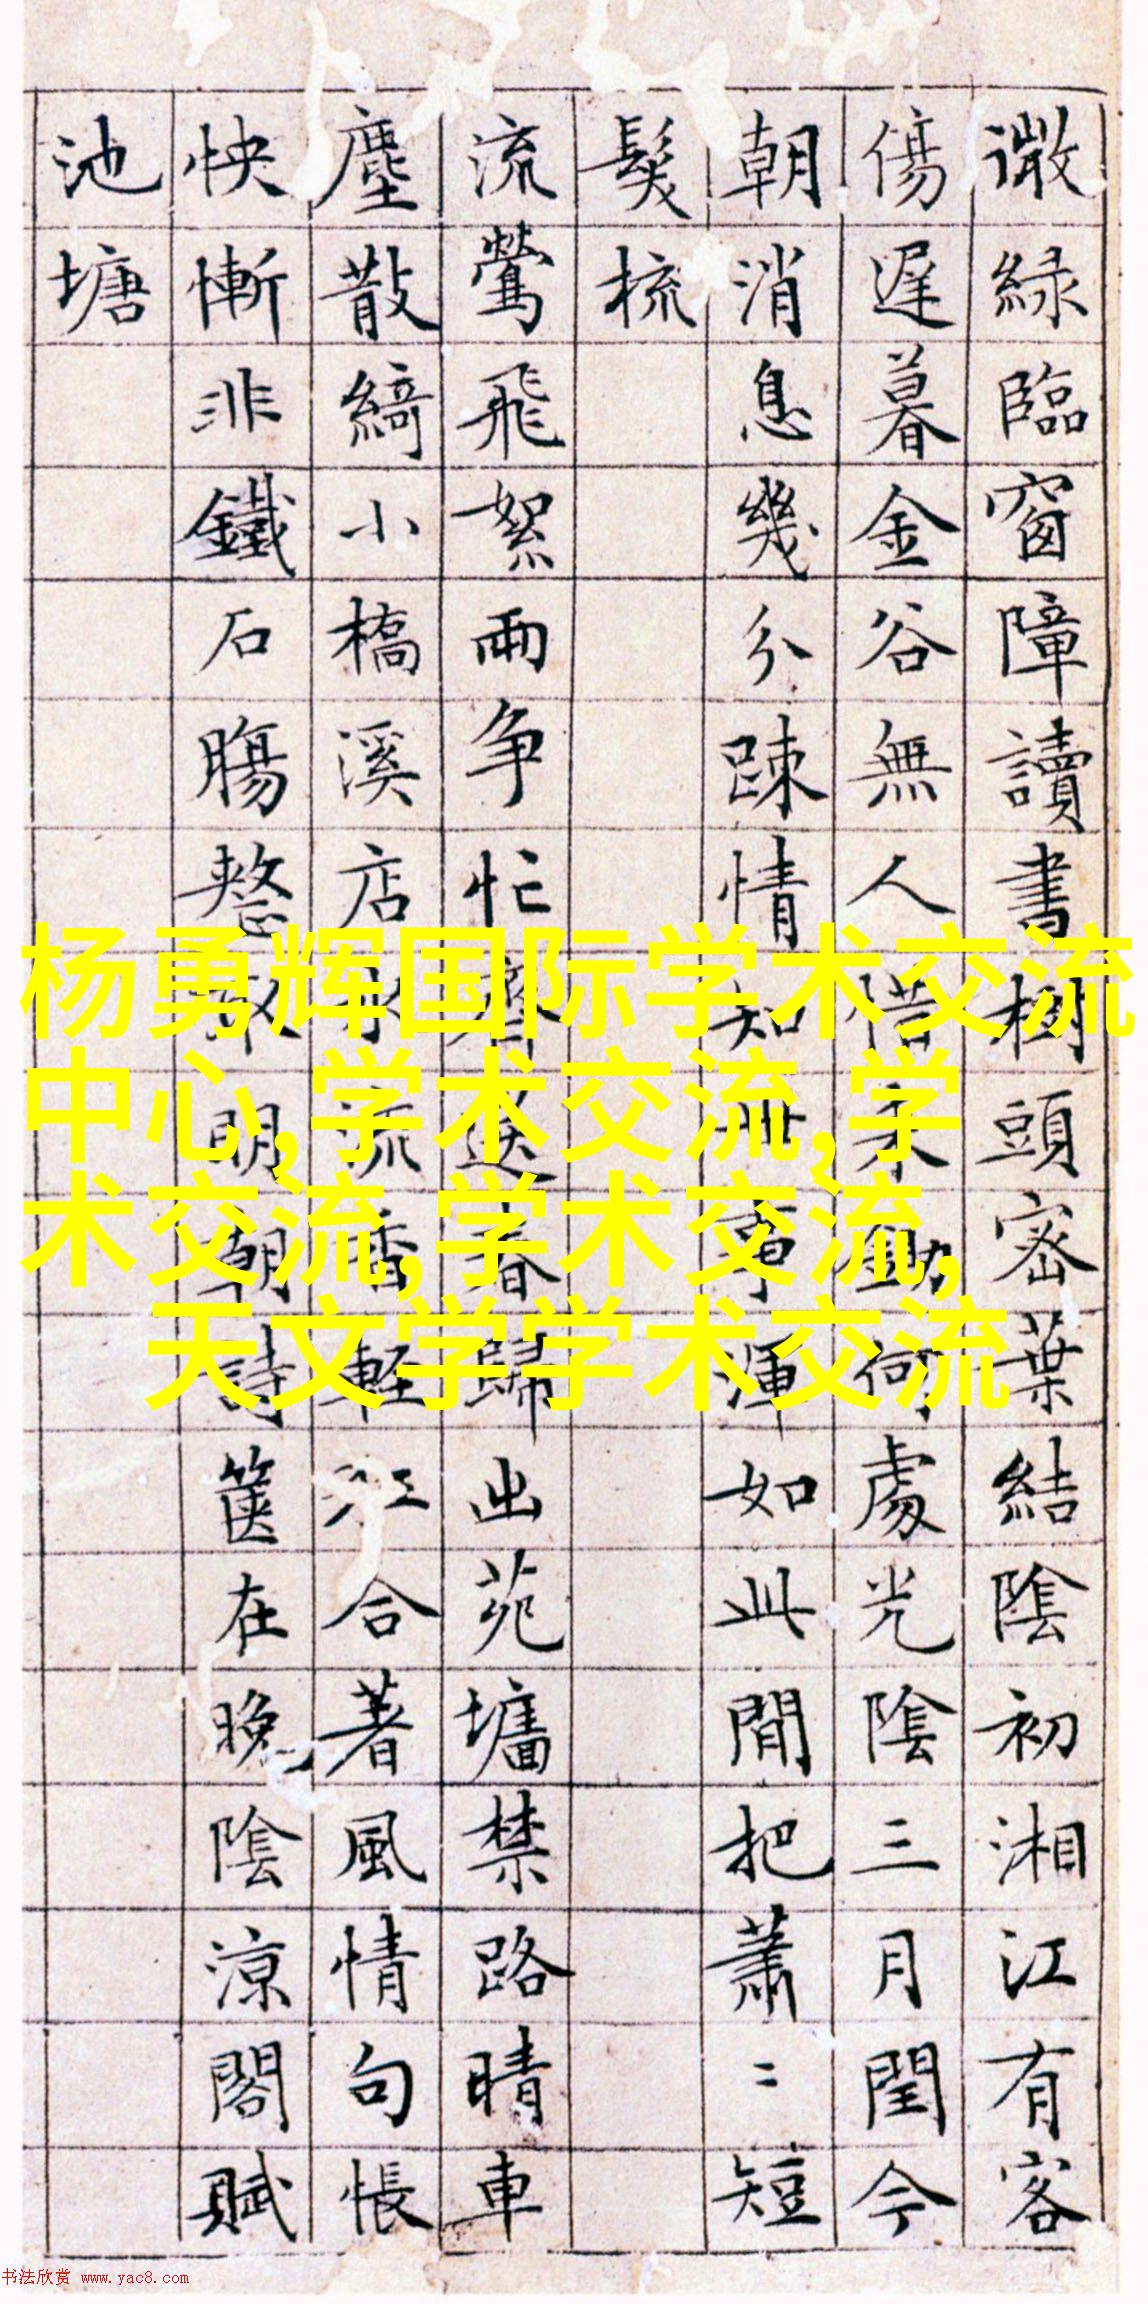 微緑臨窗障讀書樹頭宻葉結隂初湘江有客
傷遲暮金谷無人惜何處光隂三月閏今
朝消息幾分踈情知事渾如此閒把蕭〻短
髮梳
流鶯飛絮兩争忙齊送春歸出苑墻禁路晴車
塵散綺小橋溪店水流香輕紅合著風情句悵
怏慚非鐵石腸明朝詩篋在晚隂涼閣賦
池塘
杨勇辉国际学术交流
中心,学术交流,学
术交流,学术交流,
天文学学术交流
书法欣赏 www.yac8.com